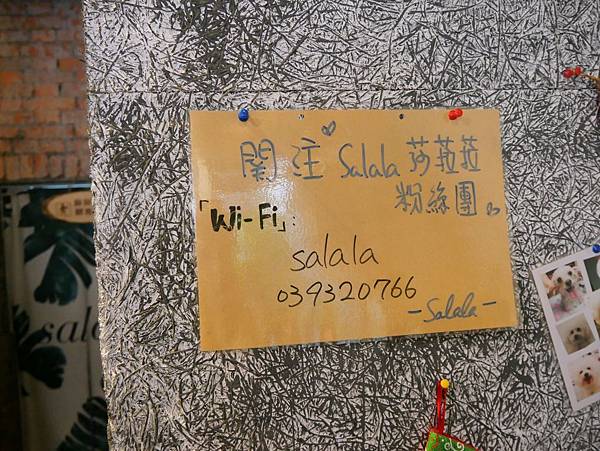 關注 Salala 莎菈菈
粉絲團。
「Wi-Fi」:
salala
039320766
-Salala-
sala